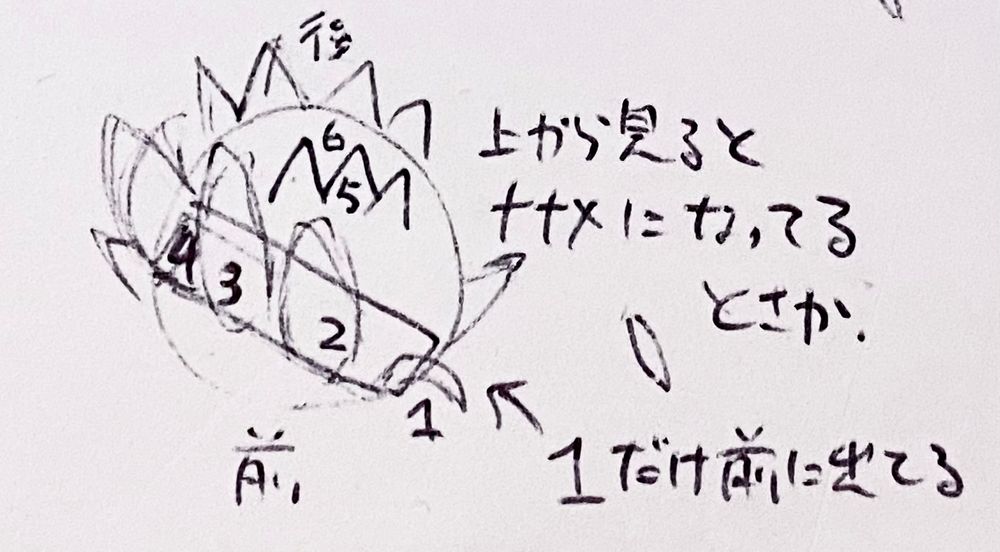 後
6
5
4
3
2
1
前
上から見ると
ナナメになってる
とさか.
1だけ前に出てる